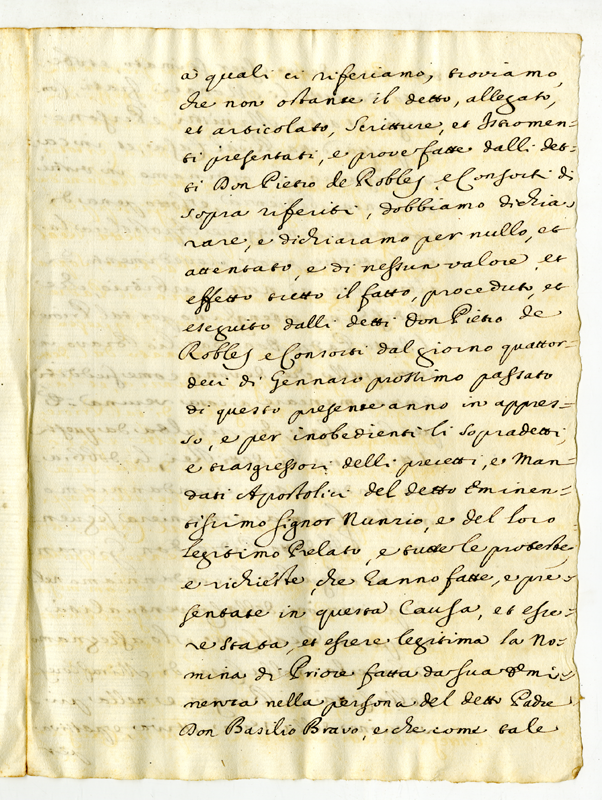 à quali ci riferiamo, troviamo,
che non ostante il detto, allegato,
et articolato, Scritture, et Istromen=
ti presentati, e prove fatte dalli det=
ti Don Pietro de Robles, e Consorti di
sopra riferiti, dobbiamo dichia=
rare, e dichiaramo per nullo, et
attentato, e di nessun valore, et
effetto tutto il fatto, proceduto, et
eseguito dalli detti Don Pietro de
Robles, e Consorti dal giorno quattor=
deci di Gennaro prossimo passato
di questo presente anno in appres=
so, e per inobedienti li sopradetti,
e trasgressori delli precetti, e Man=
dati Apostolici del detto Eminen=
tissimo Signor Nunzio, e del loro
legitimo Prelato, e tutte le proteste,
e richieste, che hanno fatte, e pre=
sentate in questa Causa, et esse=
re stata, et essere legitima la No=
mina di Priore fatta da sua Emi=
nenza nella persona del detto Padre
Don Basilio Bravo, e che come tale